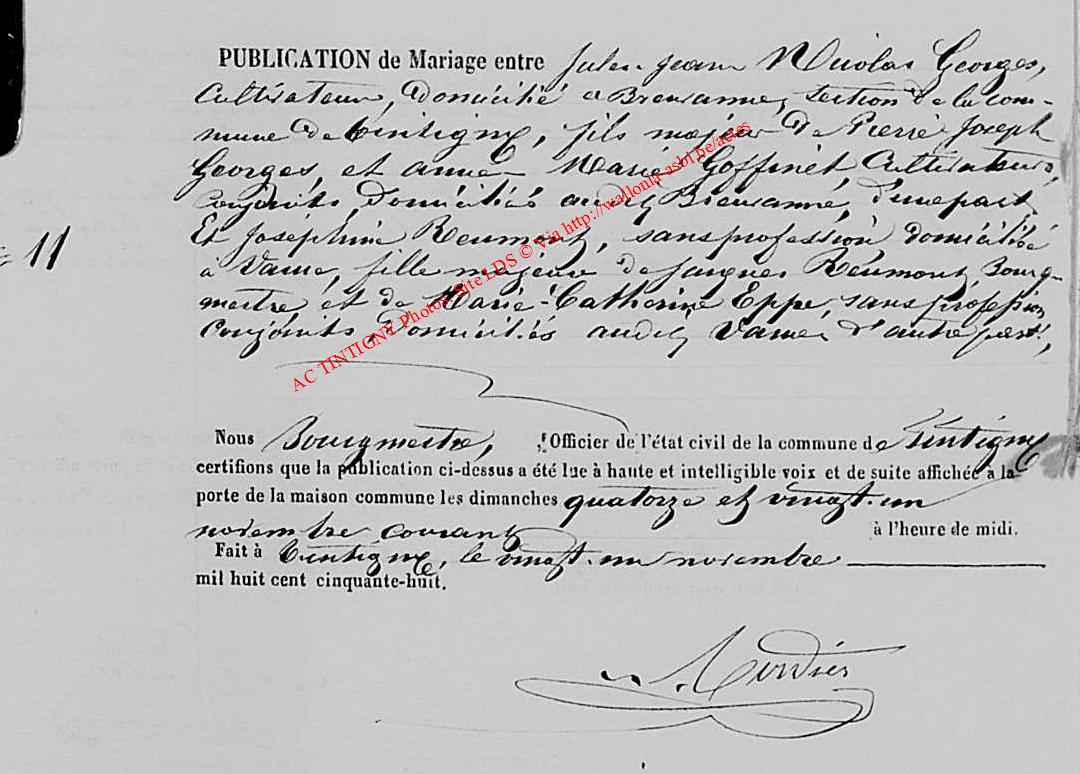 PUBLICATION de Mariage entre Jules Jean Nicolas Georges,
Cultivateur, domicilié a Breuvanne, section de la com-
mune de Tintigny, fils majeur de Pierre Joseph
Georges, et anne Marie Goffinet Cultivateurs,
Conjoints, domiciliés audit Breuvanne, d'une part
Et Joséphine Reumont, sans profession domiciliée
N° 11
à Vance, fille majeure de Jacques Reumont, Bourg-
mestre et de Marie-Catherine Eppe, sans profession
Conjoints, domiciliés audit Vance, d'autre part,
AC TINTIGNY Photos Site LDS © Via http://wallonia-asbl.be/actes
Nous Bourgmestre, Officier de l'état civil de la commune de Tintigny
certifions que la publication ci-dessus a été lue à haute et intelligible voix et de suite affichée à la
porte de la maison commune les dimanches quatorze et vingt-un
novembre courant à l'heure de midi.
Fait à Tintigny, le vingt-un novembre
mil huit cent cinquante-huit.